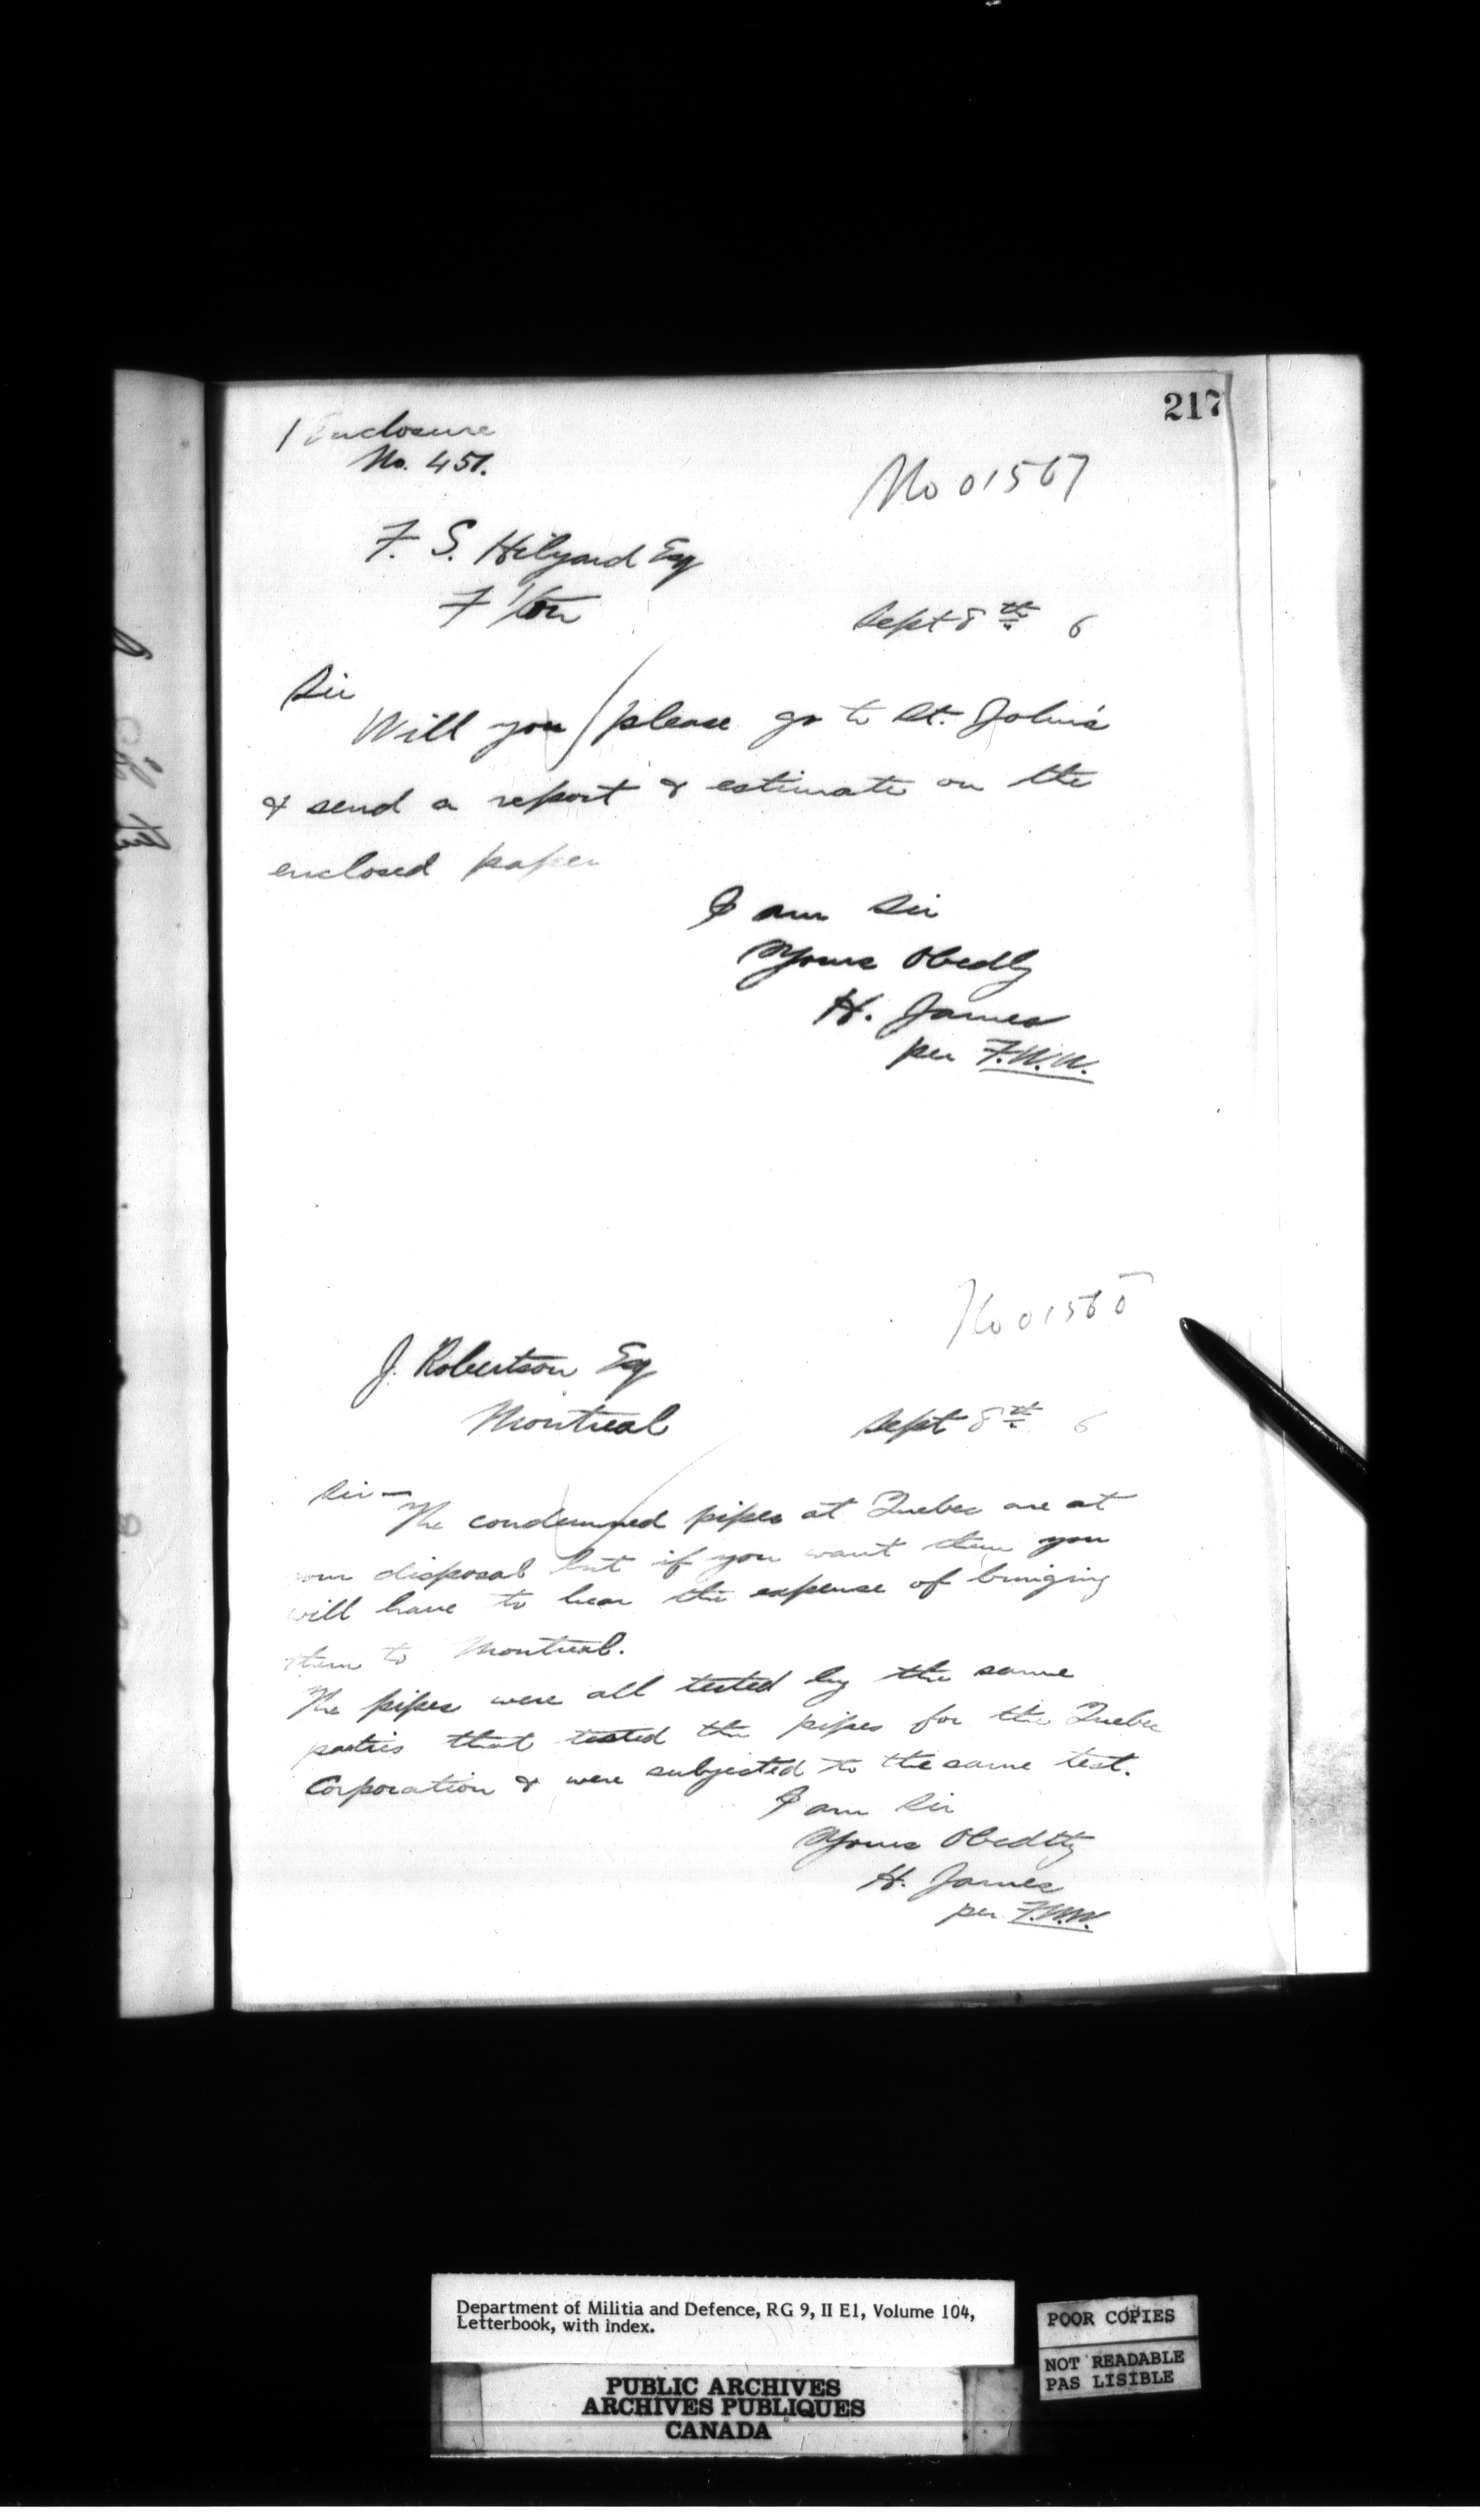 217
1 Enclosure
No. 451.
No 01567
F. S. Hilyard Esq
F'ton
Sept 8th 6
Sir
Will you please go to St. John's
& send a report & estimate on the
enclosed paper
I am Sir
Yours Obedly
H. James
per F.W.W.
No 0156
J. Robertson Esq
Montreal
Sept 8th 6
Sir —
The condemned pipes at Quebec are at
your disposal but if you want them you
will have to bear the expense of bringing
them to Montreal.
The pipes were all tested by the same
parties that tested the pipes for the Quebec
Corporation & were subjected to the same test.
I am Sir
Yours Obedtly
H. James
per F.W.W.
Department of Militia and Defence, RG 9, II E1, Volume 104,
Letterbook, with index.
POOR COPIES
NOT READABLE
PAS LISIBLE
PUBLIC ARCHIVES
ARCHIVES PUBLIQUES
CANADA